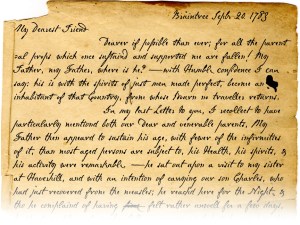 Braintree Septbr 20. 1783
My Dearest Friend
Dearer if possible than ever; for all the parent
=al props which once sustaind and supported me are fallen! My
Father, my Father, where is he? — with Humble confidence I can
say; he is with the spirits of just men made perfect, become an
inhabitant of that Country, from whose bourn no traveller returns.
In my last Letter to you, I recollect to have
particularly mentioned both our dear and venerable parents. My
Father then appeard to sustain his age, with fewer of the infirmities
of it, than most aged persons are subject to, his Health, his spirits, &
his activity were remarkable — he sat out upon a visit to my sister
at Haverhill, and with an intention of carrying our son Charles, who
had just recovered from the measles; he reachd here for the Night, &
the he complaind of having felt rather unwell for a few days,